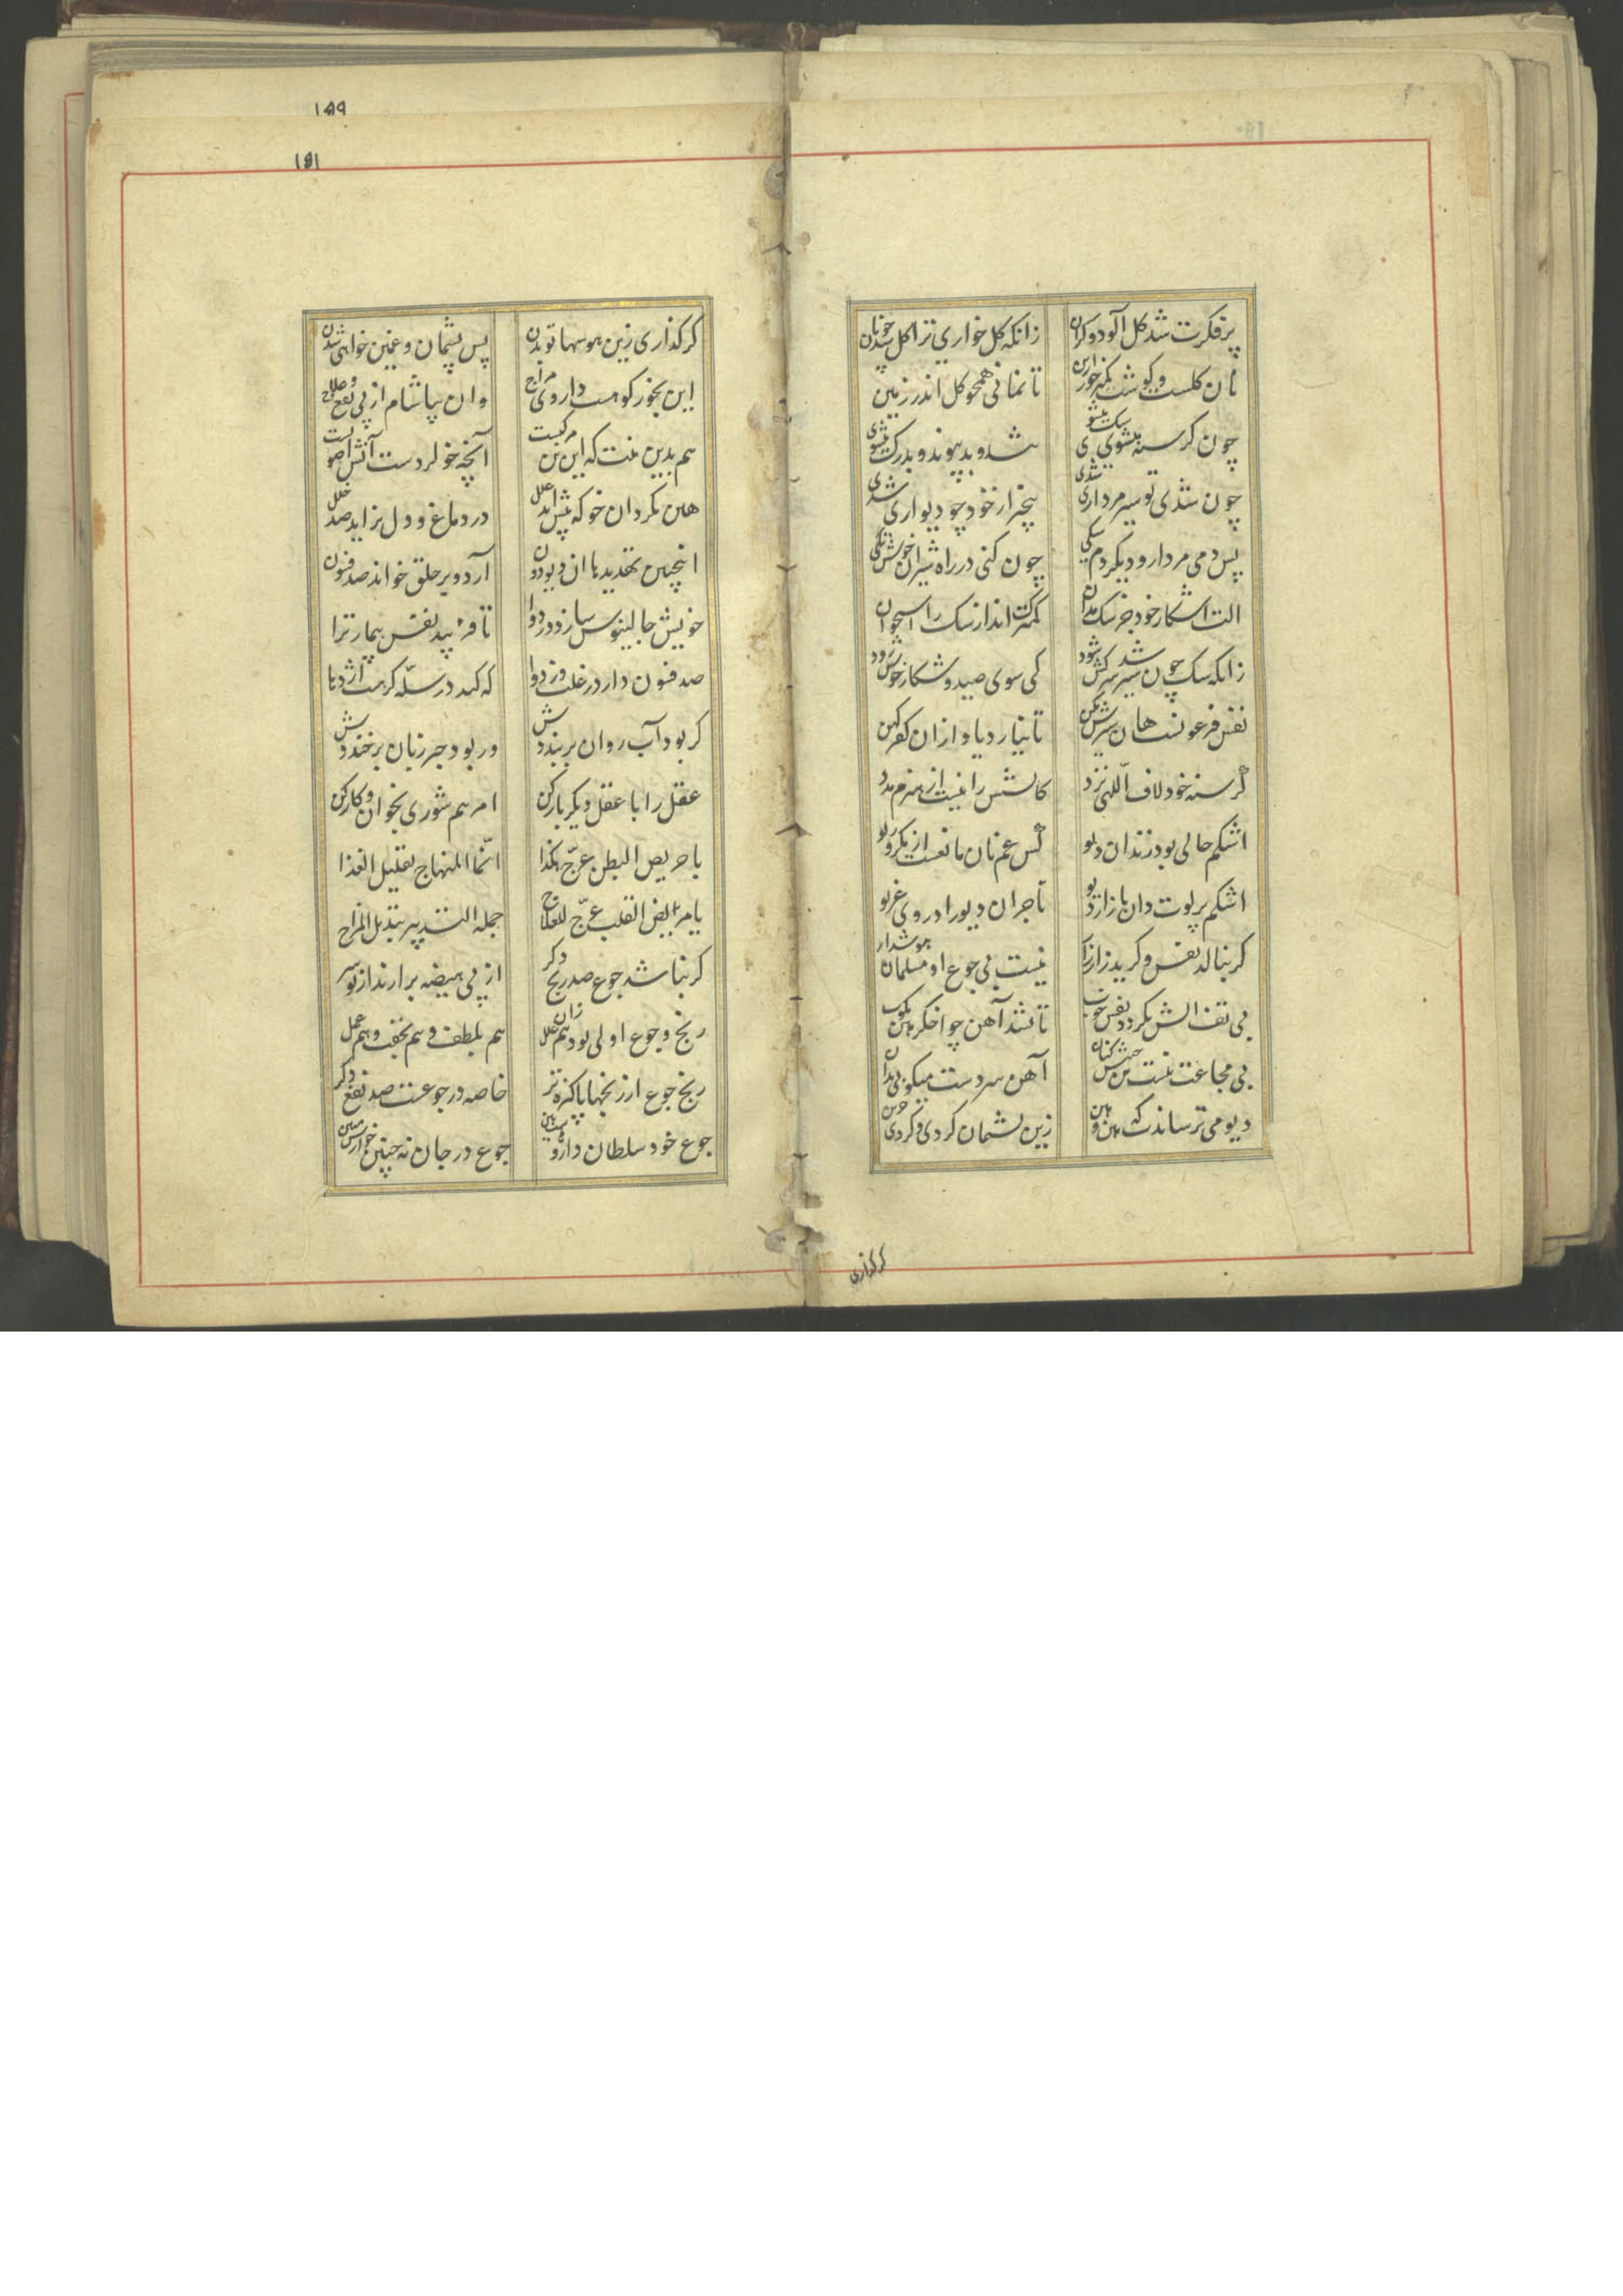 ۱۵۹
۱۵۱
پر فکرت شد کل آلود و کران زانکه کل خواری ترا کل شد چو نان
نان کلست و کوشت کمتر خور ازین تا نمانی همچو کل اندر زمین
چون کرسنه میشوی سک میشوی تند و بد پیوند و بدرک میشوی
چون شدی تو سیر مرداری شدی بیخبر از خود چو دیواری شدی
پس دمی مردار و دیکر دم سکی چون کنی در راه شیران خوش تکی
الت اشکار خود جز سک مدان کمترک انداز سک را استخوان
زانکه سک چون سیر شد سرکش شود کی سوی صید و شکار خوش رود
نفس فرعونست هان سیرش مکن تا نیارد یاد از ان کفر کهن
کرسنه خود لاف اللهی نزد کاتشش را نیست از هیزم مدد
اشکم خالی بود زندان دیو کش غم نان مانعست از مکر و ریو
اشکم پر لوت دان بازار دیو تاجران دیو را در وی غریو
کر بنالد نفس و کرید زار زار نیست بی جوع او مسلمان هوشدار
بی تف اتش نکردد نفس خوب تا نشد آهن چو اخکر هین مکوب
بی مجاعت نیست تن جنبش کنان آهن سردست میکوبی بدان
دیو می ترساندت که هین و هین زین پشیمان کردی و کردی حزین
کر کذاری
کر کذاری زین هوسها تو بدن پس پشیمان و غمین خواهی شدن
این بخور کو هست داروی مزاج وان بیاشام از پی نفع و علاج
هم بدین نیت که این تن مرکبست آنچه خو کردست آنش اصوبست
هین مکردان خو که پیش اید خلل در دماغ و دل بزاید صد علل
اینچنین تهدیدها ان دیو دون آرد و بر خلق خواند صد فسون
خویش جالینوس سازد در دوا تا فریبد نفس بیمار ترا
صد فنون دارد ز غلت وز دوا که کند در سله کر هست اژدها
کر بود آب روان بر بنددش ور بود حبر زمان بر خنددش
عقل را با عقل دیکر یار کن امرهم شوری بخوان و کار کن
یا حریص البطن عرّج هکذا انّما المنهاج تقلیل الغذا
یا مریض القلب عرّج للعلاج جمله التدبیر تبدیل المزاج
کر نباشد جوع صد رنج دکر از پی هیضه برارند از تو سر
رنج و جوع اولی بود هم زان علل هم بلطف و هم بخفت و هم عمل
رنج جوع از رنجها پاکیزه تر خاصه در جوعست صد نفع دکر
جوع خود سلطان داروهاست هین جوع در جان نه چنین خوارش مبین